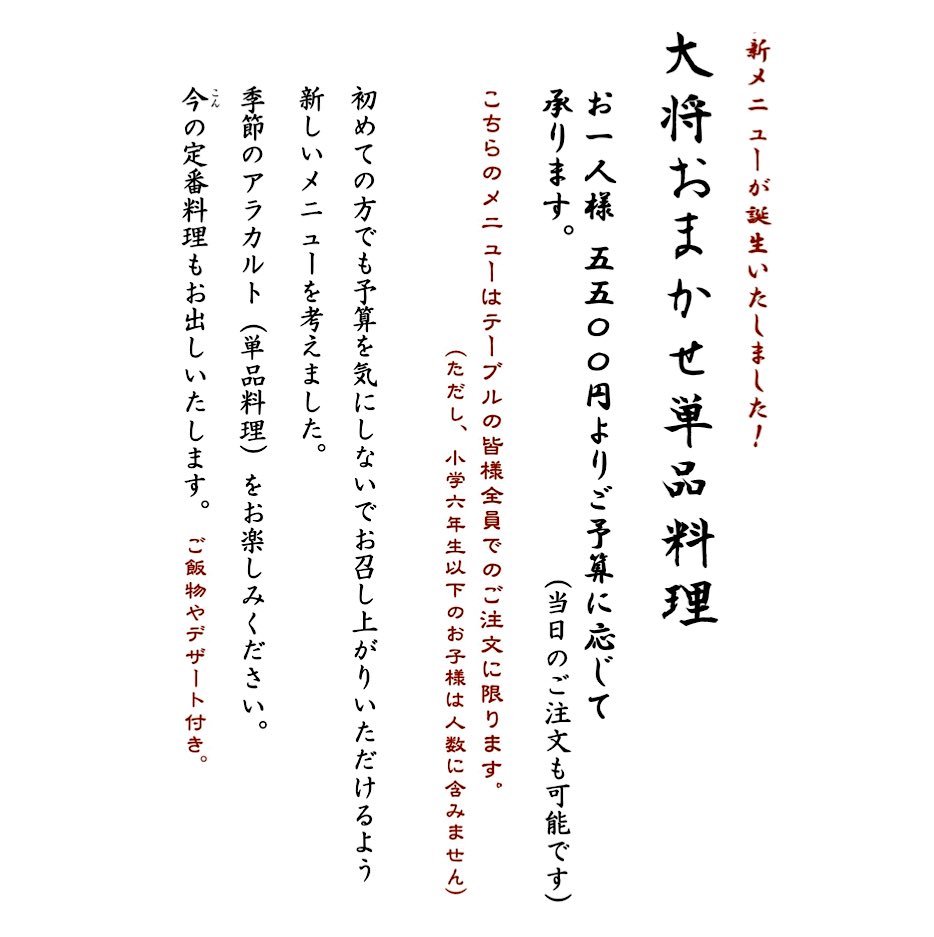 新メニューが誕生いたしました！
大将おまかせ単品料理
お一人様 五五〇〇円よりご予算に応じて
承ります。（当日のご注文も可能です）
こちらのメニューはテーブルの皆様全員でのご注文に限ります。
（ただし、小学六年生以下のお子様は人数に含みません）
初めての方でも予算を気にしないでお召し上がりいただけるよう
新しいメニューを考えました。
季節のアラカルト（単品料理）をお楽しみください。
今の定番料理もお出しいたします。ご飯物やデザート付き。
こん